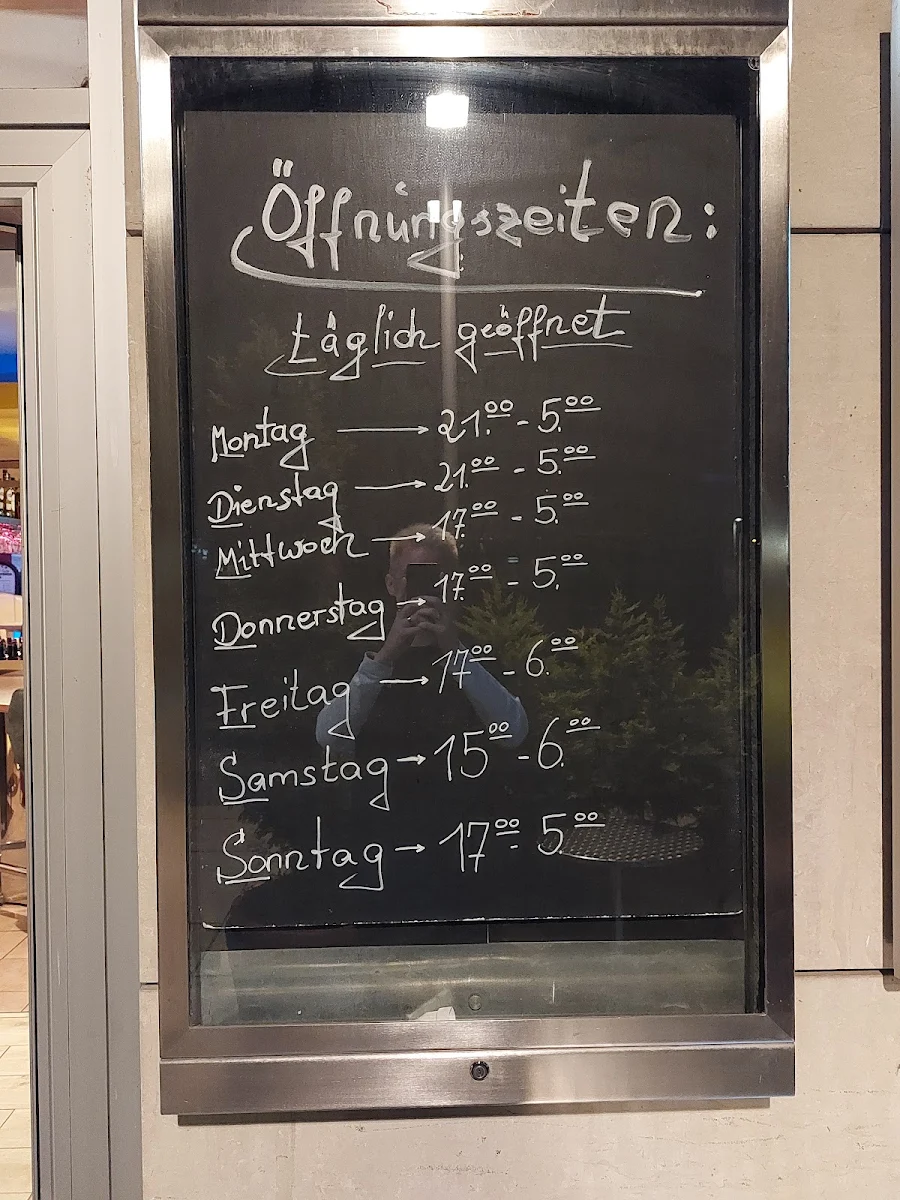 Öffnungszeiten:
täglich geöffnet
Montag → 21.00 - 5.00
Dienstag → 21.00 - 5.00
Mittwoch → 17.00 - 5.00
Donnerstag → 17.00 - 5.00
Freitag → 17.00 - 6.00
Samstag → 15.00 - 6.00
Sonntag → 17.00 - 5.00